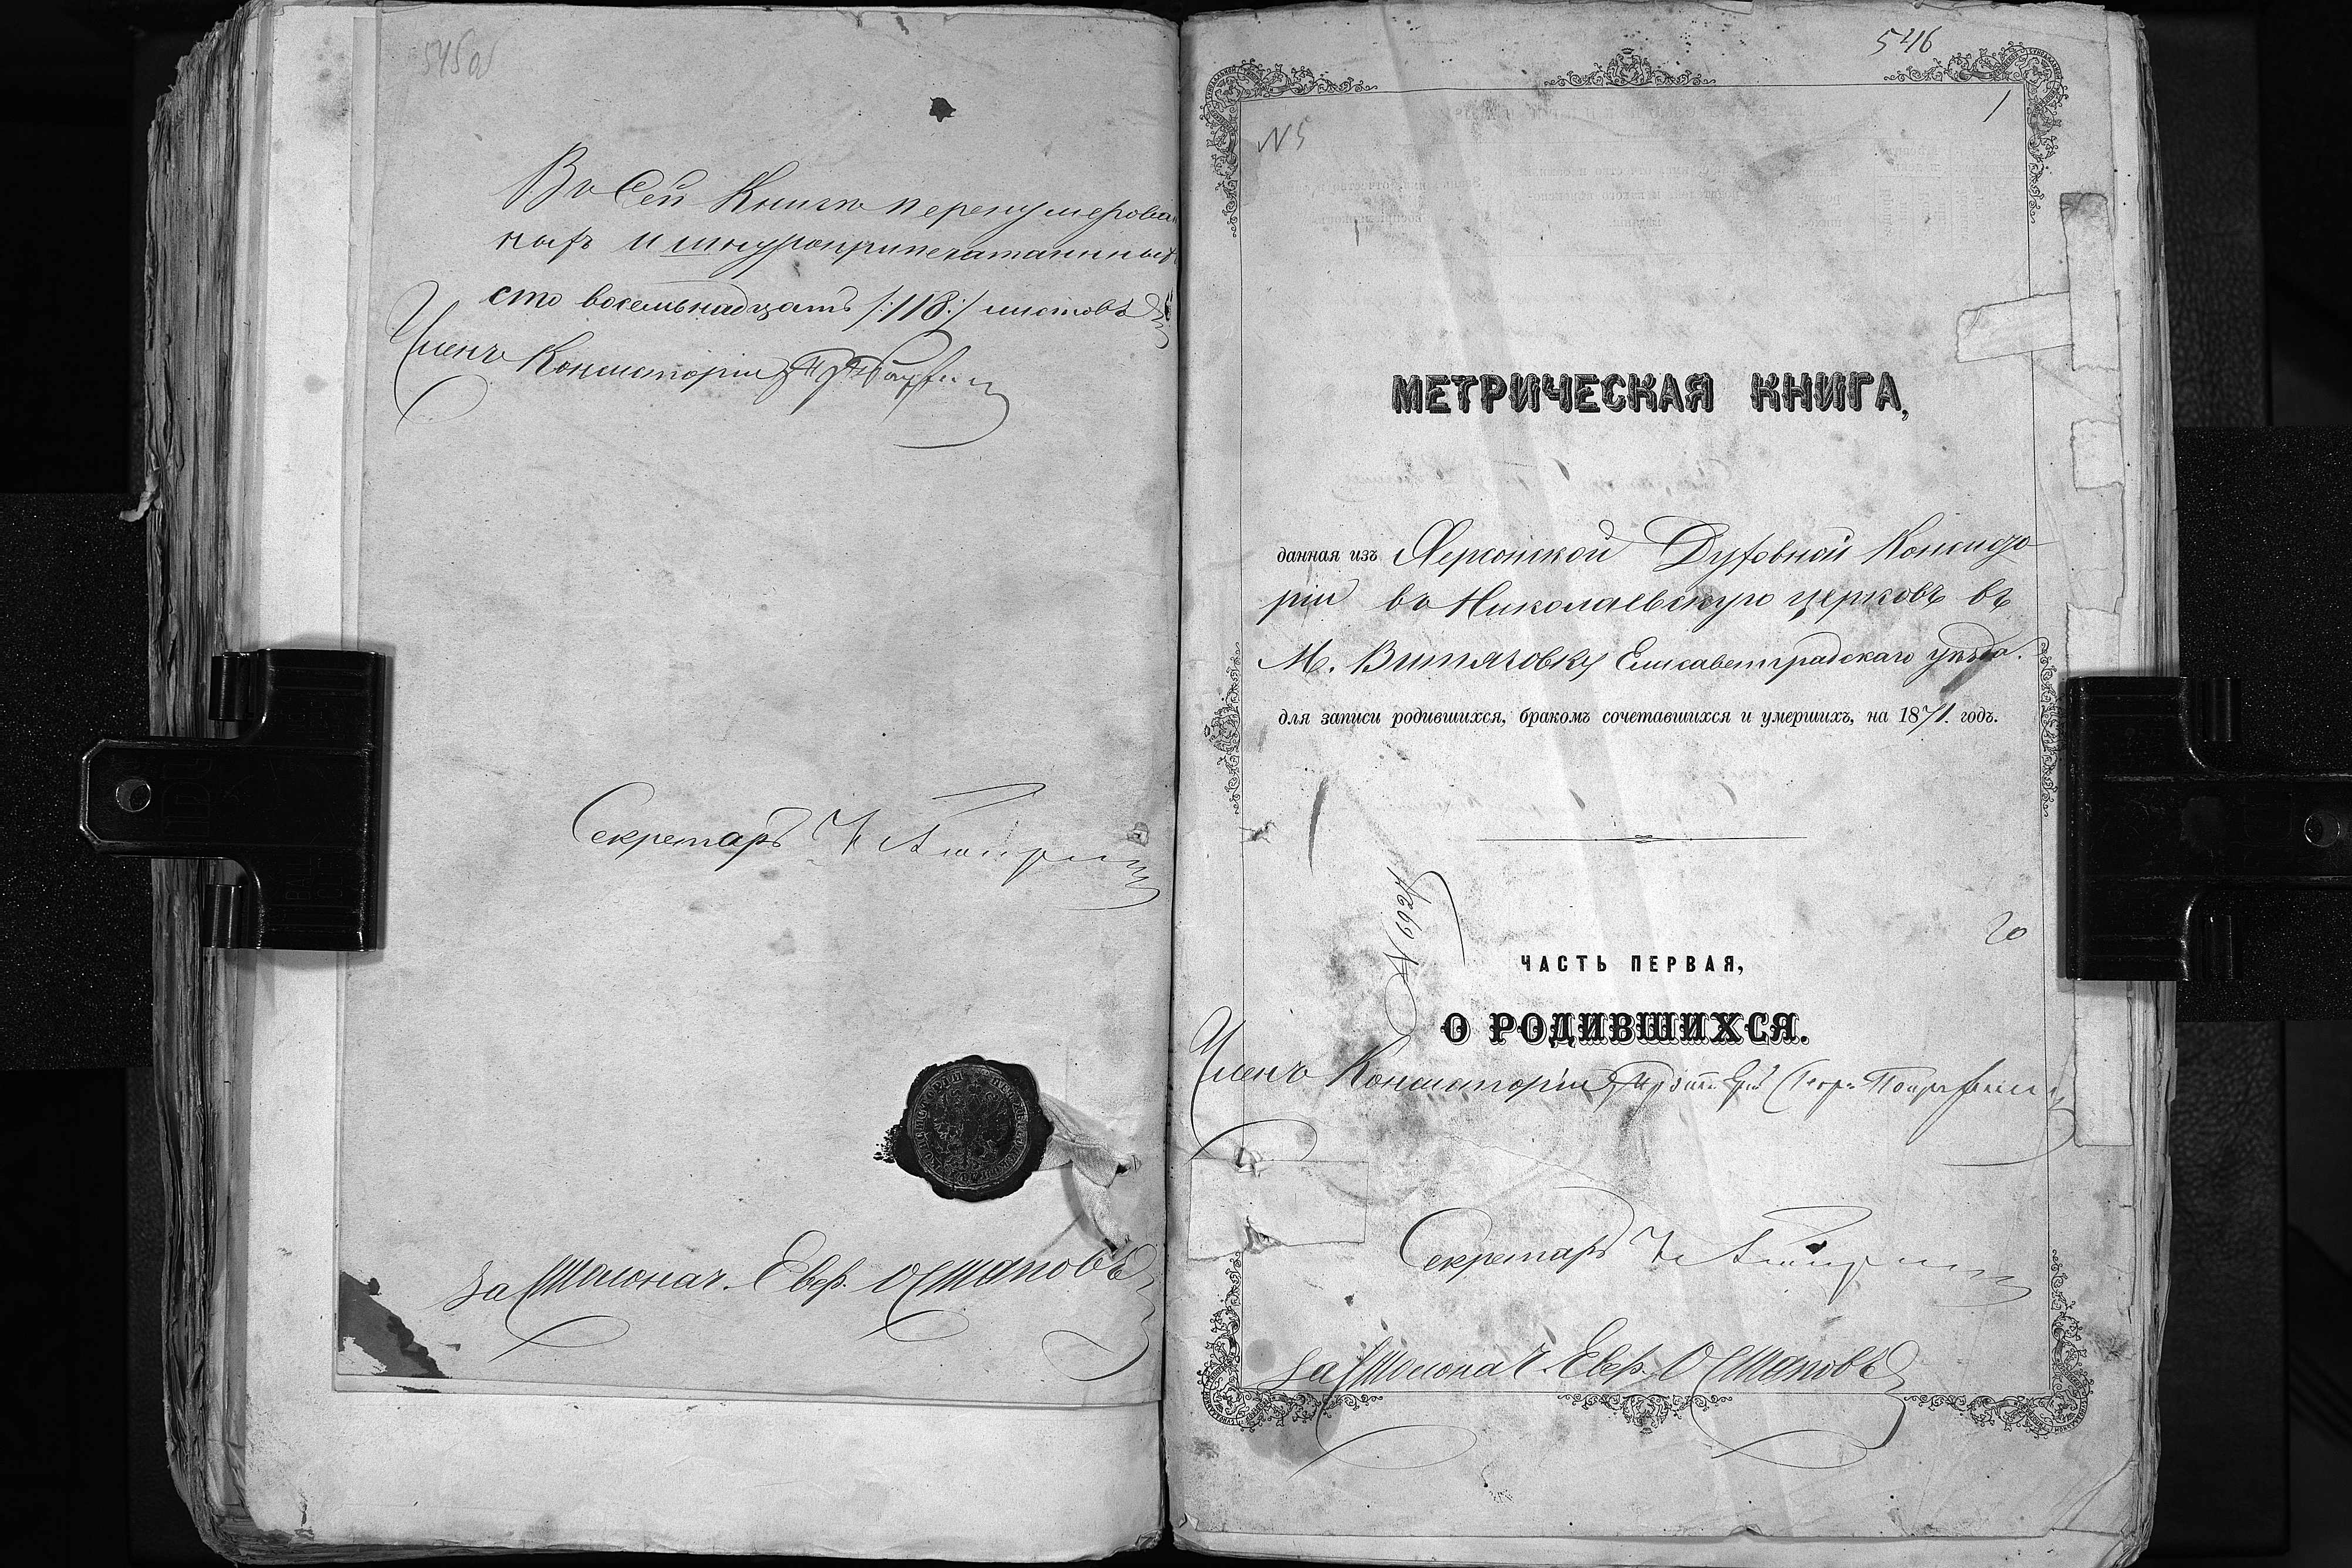 545об
Въ сей Книгѣ перенумерован
ныхъ и шнуроприпечатанныхъ
сто восемьнадцать /:118:/ листовъ
Членъ Консисторіи
Секретарь
За Столонач. Евф. Остаповъ
546
1
N 5
МЕТРИЧЕСКАЯ КНИГА,
данная изъ Херсонской Духовной Консисто
ріи въ Николаевскую церковь въ
М. Витязовку Елисаветградскаго уѣзда.
для записи родившихся, бракомъ сочетавшихся и умершихъ, на 1871. годъ.
N 6924
20
ЧАСТЬ ПЕРВАЯ,
О РОДИВШИХСЯ.
Членъ Консисторіи
Секретарь
За Столонач. Евф. Остаповъ